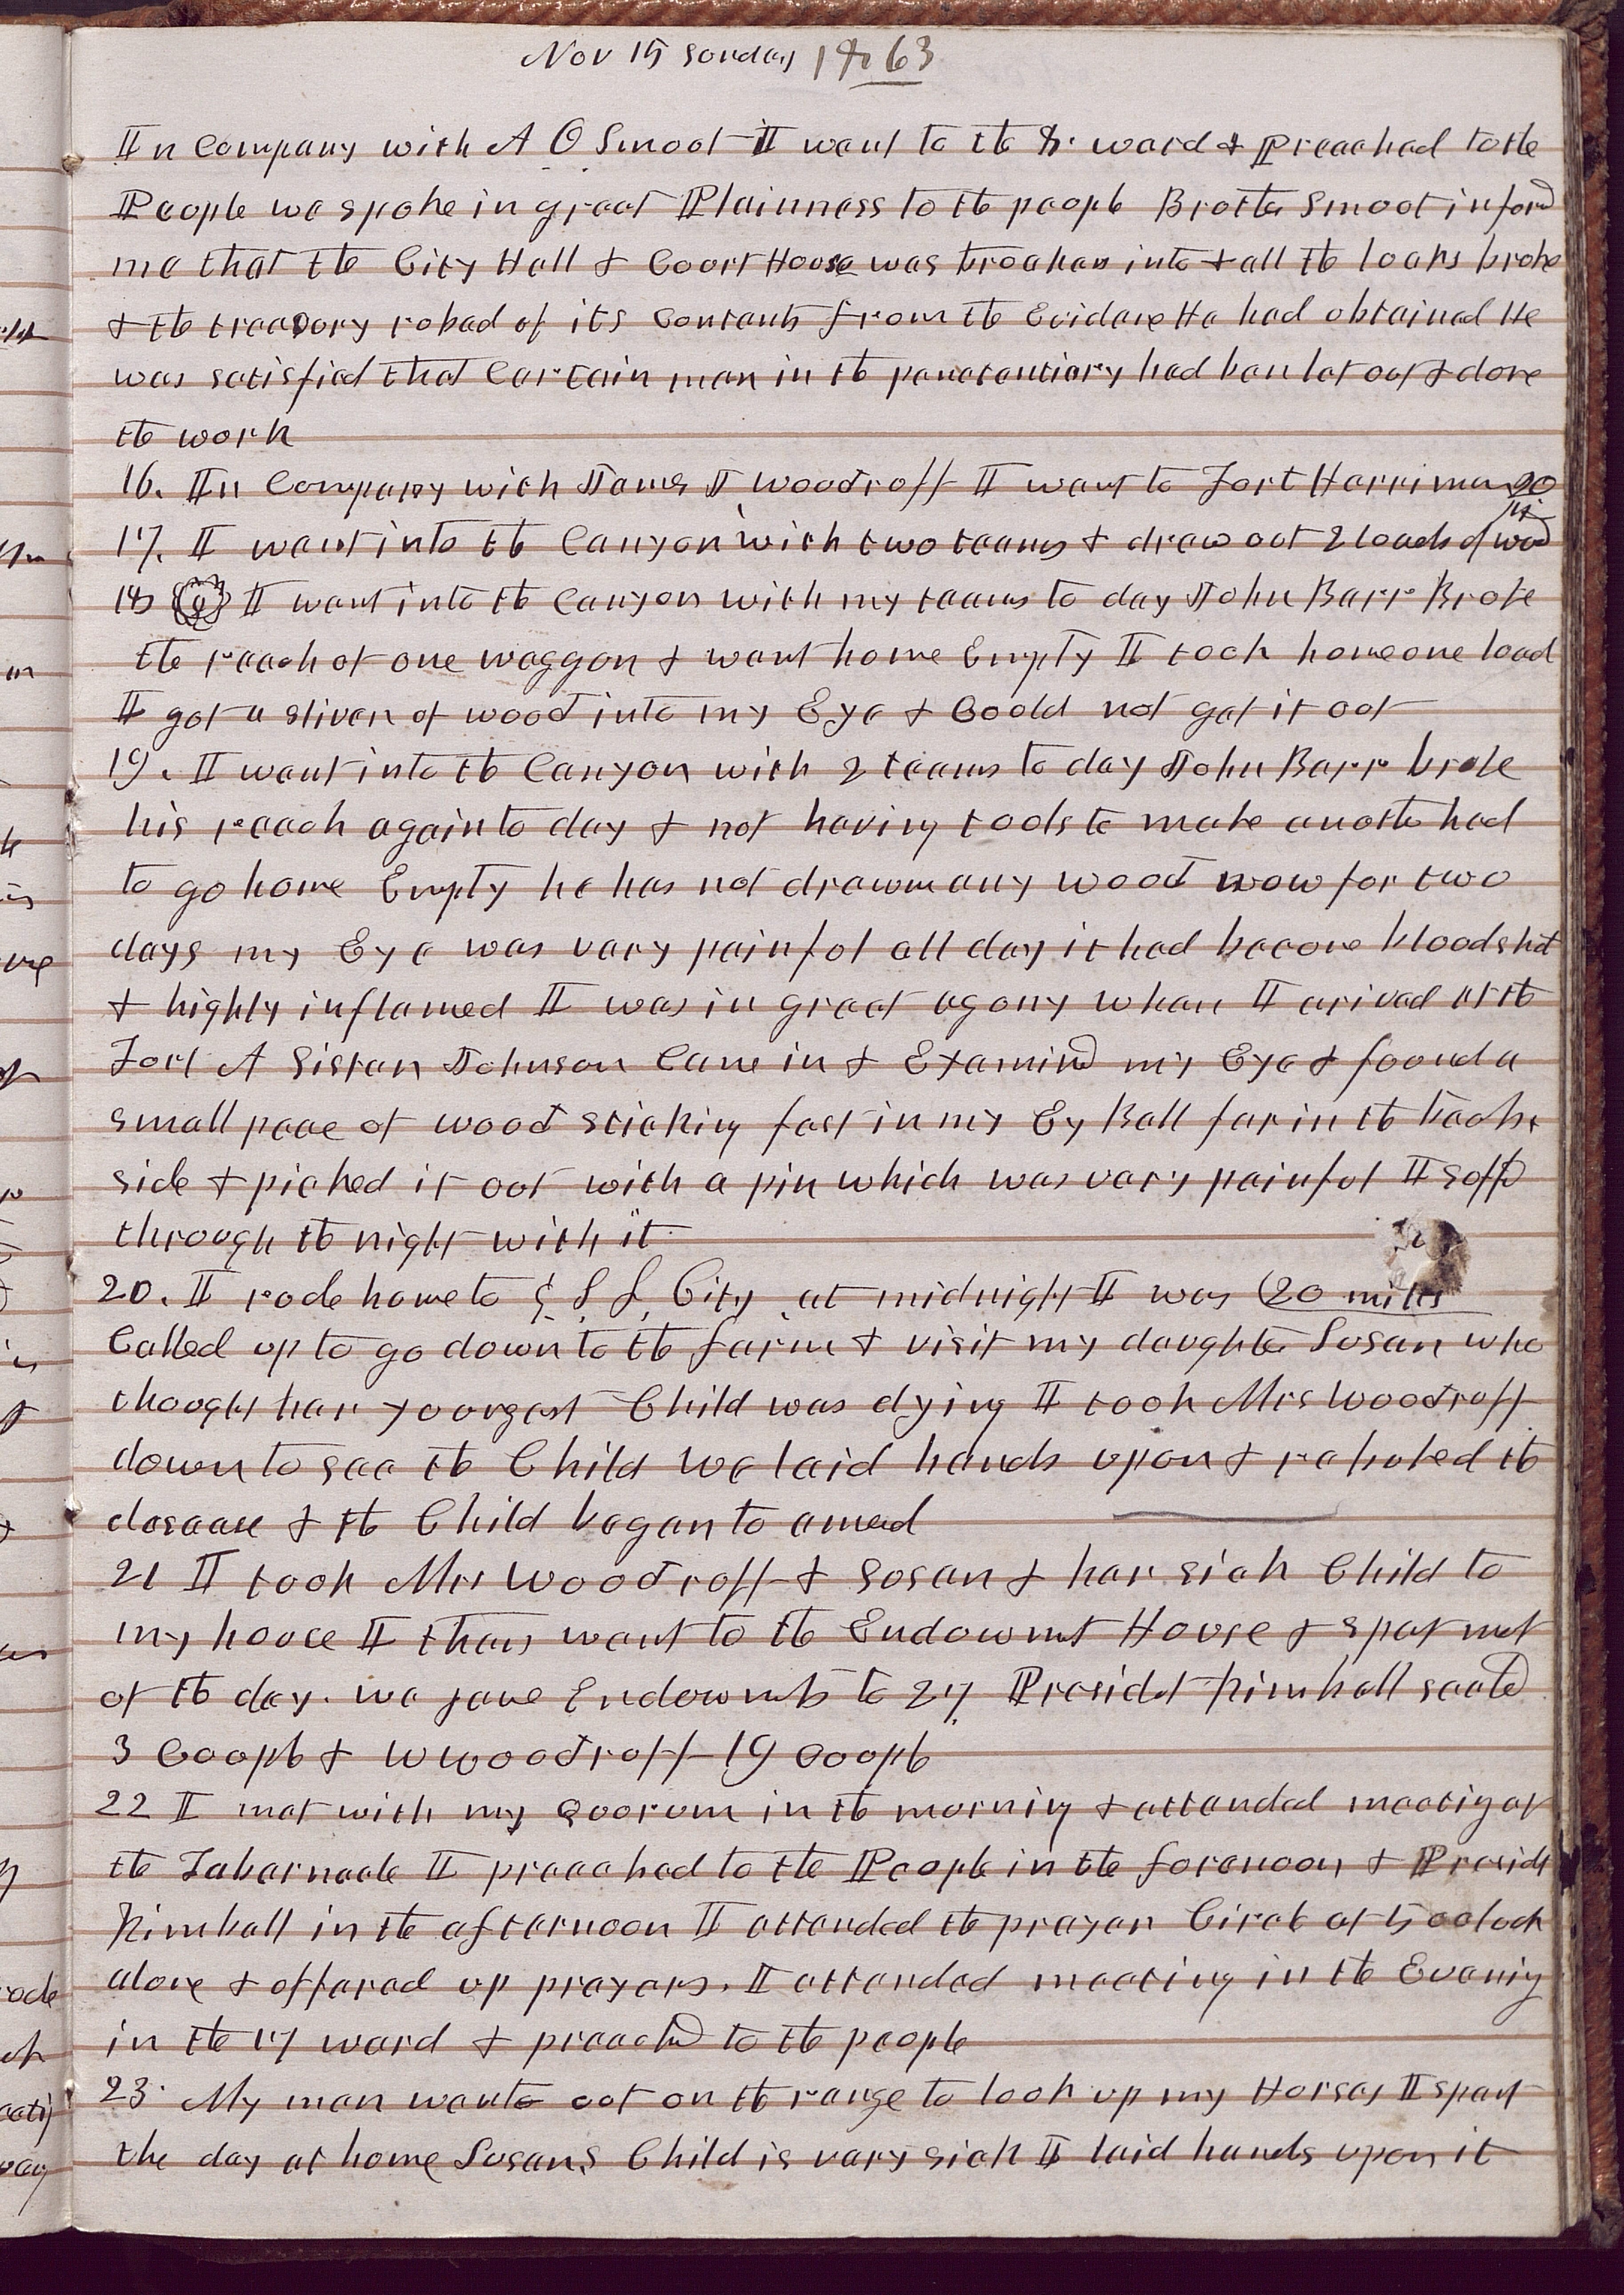 Nov 15 Sonday 1863
In Company with A O Smoot I went to the 8. ward & Preached to the
People we spoke in great Plainness to the people Brother Smoot inford
me that the City Hall & Court House was broaken into & all the locks broke
& the treasory robed of its Contents from the Evidence He had obtained He
was satisfied that Certain men in the penetentiary had ben let out & done
the work
16. In Company with James J Woodruff I went to Fort Harriman 20
m
17. I went into the Canyon with two teams & drew out 2 loads of wood
18 I went into the Canyon with my teams to day John Barr Broke
the reach of one waggon & went home Empty I took home one load
I got a sliver of wood into my Eye & Could not get it out
19. I went into the Canyon with 2 teams to day John Barr broke
his reach again to day & not having tools to make another had
to go home Empty he has not drawn any wood now for two
days my Eye was very painful all day it had become bloodshot
& highly inflamed I was in great agony when I arived at the
Fort A Sister Johnson Came in & Examind my Eye & found a
small peace of wood sticking fast in my Ey Ball far in the back
side & picked it out with a pin which was very painful I suffd
through the night with it
20. I rode home to G. S. L. City at midnight I was 20 miles
Called up to go down to the farm & visit my daughter Susan who
thought her youngest Child was dying I took Mrs Woodruff
down to see the Child We laid hands upon & rebuked the
desease & the Child began to amend
21 I took Mrs Woodruff & Susan & her sick Child to
my house I then went to the Endowmet House & spet most
of the day. we gave Endowmets to 27 Presidet Kimball seald
3 Couple & W Woodruff 19 Couple
22 I met with my Quorum in the morning & attended meeting at
the Tabernacle I preached to the People in the forenoon & Presidt
Kimball in the afternoon I attended the prayer Circle at 5 oclock
alone & offered up prayers. I attended meeting in the Evening
in the 17 ward & preachd to the people
23. My men went out on the range to look up my Horses I spent
the day at home Susans Child is very sick I laid hands upon it